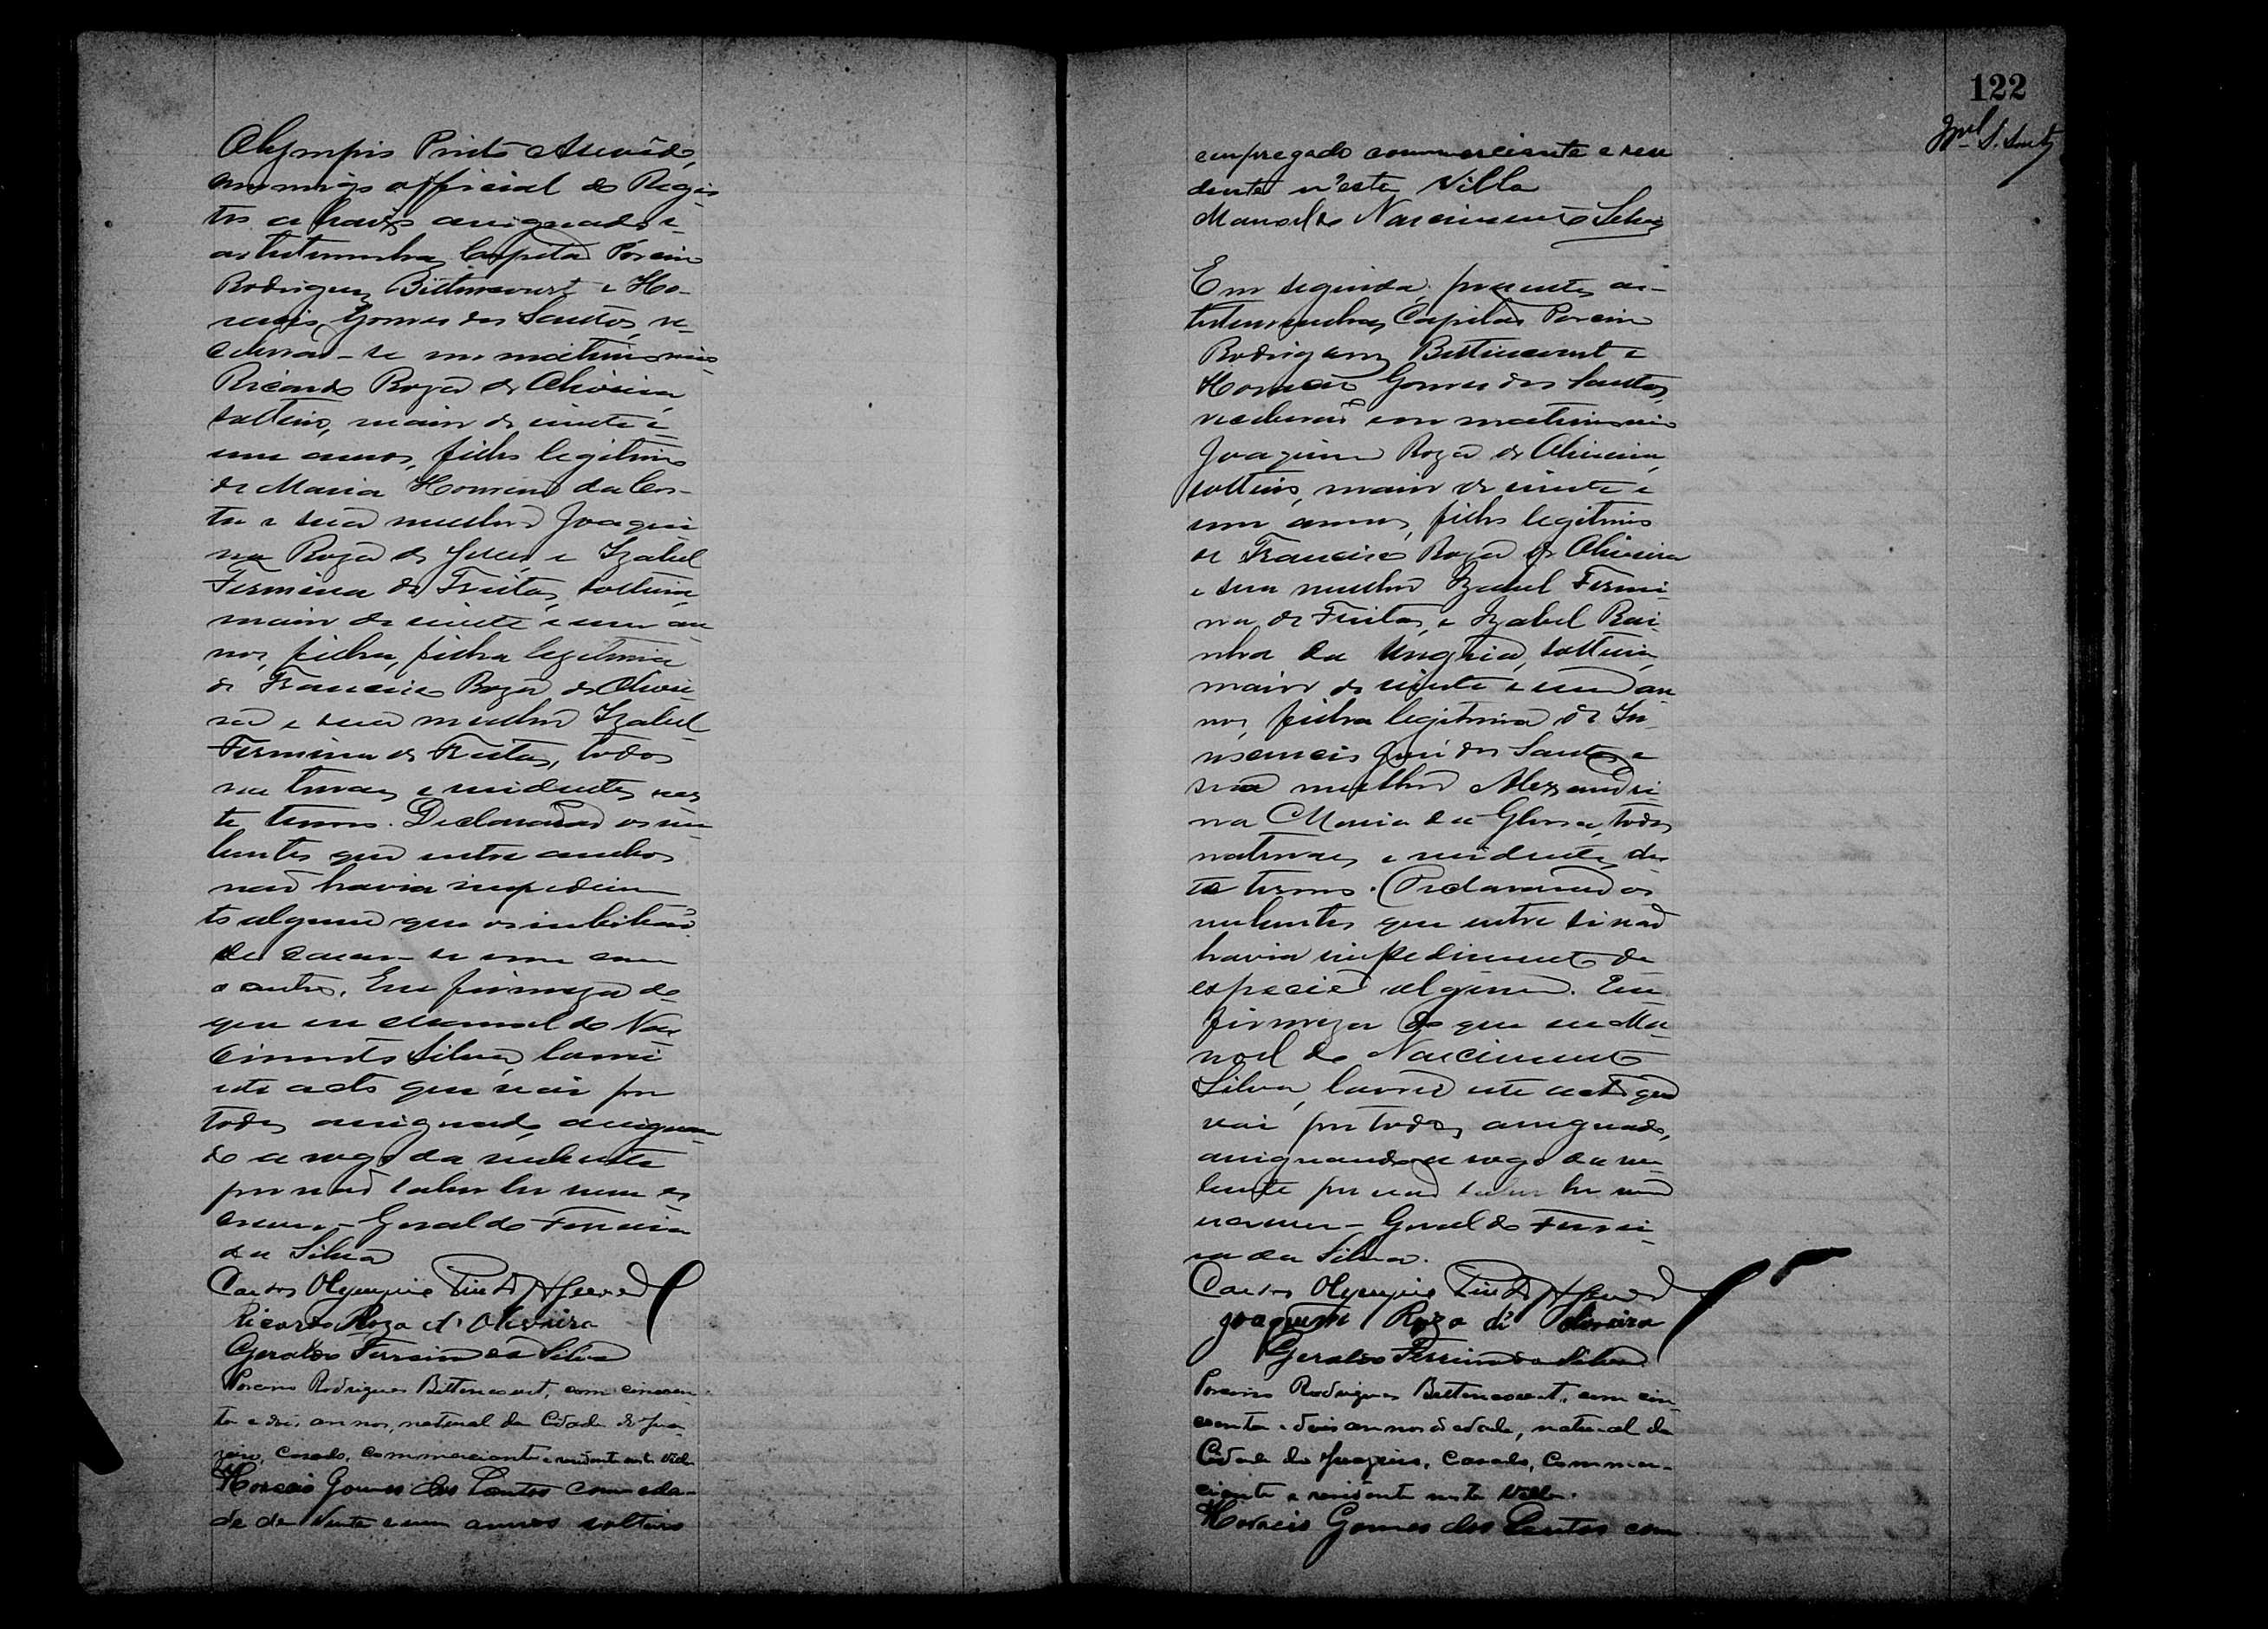 Olympio Pinto Asevêdo,
commigo official do Regis-
tro a baixo assignado e
as testemunhas Capitão Porcino
Rodrigues Bittencourt e Ho-
racio Gomes dos Santos, re-
ceberão-se em matrimonio
Ricardo Roza de Oliveira,
solteiro, maior de vinte e
um annos, filho legitimo
de Maria Homem da Cos-
ta e sua mulher Joaqui
na Roza de Jesus e Izabel
Fermina de Freitas, solteira,
maior de vinte e um an
nos, filha, filha legitima
de Francisco Roza de Olivei-
ra e sua mulher Izabel
Fermina de Freitas, todos
naturaes e residentes nes
te termo. Declararão os nu
bentes que entre ambos
não havia impedimen
to algum que os inhibisse
de casar-se um com
o outro. Em firmeza do
que eu Manoel do Nas
cimento Silva, lavrei
este acto que vai por
todos assignado, assignan
do a rogo da nubente
por não saber ler nem es
crever - Geraldo Ferreira
da Silva
Carlos Olympio Pinto Azevedo
Ricardo Roza de Oliveira
Geraldo Ferreira da Silva
Porcino Rodrigues Bittencourt, com cincoen-
ta e dois annos, natural da Cidade do Joa-
zeiro, casado, commerciante e residente nesta Villa
Horacio Gomes dos Santos com eda-
de de Vinte e um annos solteiro
122
empregado commerciante e resi
dente n'esta Villa
Manoel do Nascimento Silva
Em seguida, presentes as
testemunhas, Capitão Porcino
Rodrigues Bittencourt e
Horacio Gomes dos Santos,
receberão em matrimonio
Joaquim Roza de Oliveira,
solteiro, maior de vinte e
um annos, filho legitimo
de Francisco Roza de Oliveira
e sua mulher Izabel Fermi-
na de Freitas, e Izabel Rai-
nha da Ungria, solteira,
maior de vinte e um an
nos, filha legitima de In
nocencio José dos Santos e
sua mulher Alexandri-
na Maria da Gloria, todos
naturaes e residentes des
te termo. Declararão os
nubentes que entre si não
havia impedimento de
especie alguma. Em
firmeza do que eu Ma-
noel do Nascimento
Silva, lavrei este acto que
vai por todos assignado,
assignando a rogo da nu-
bente por não saber ler nem
escrever - Geraldo Ferrei-
ra da Silva.
Carlos Olympio Pinto Azevedo
Joaquim Roza di Oliveira
Geraldo Ferreira da Silva
Porcino Rodrigues Bittencourt, com cin-
coenta e dois annos de edade, natural da
Cidade do Joazeiro, Casado, Commer-
ciante e residente nesta Villa.
Horacio Gomes dos Santos com